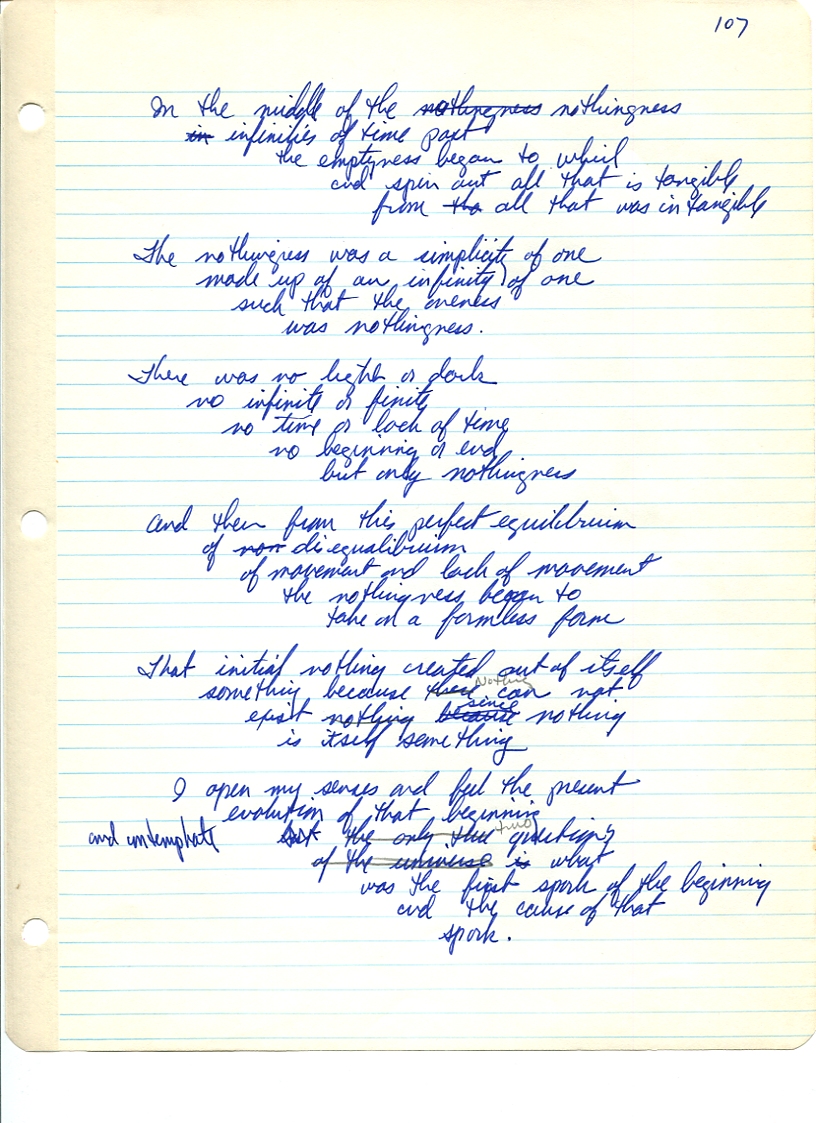 107
In the middle of the nothingness nothingness
in infinities of time past
the emptyness began to whirl
and spin out all that is tangible
from the all that was intangible
The nothingness was a simplicity of one
made up of an infinity of one
such that the oneness
was nothingness.
There was no light or dark
no infinite or finite
no time or lack of time
no beginning or end
but only nothingness
and then from this perfect equilibrium
of non disequalibrium
of movement and lack of movement
the nothingness began to
take on a formless form
That initial nothing created out of itself
Nothing
something because can not
since
exist nothing because nothing
is itself something
I open my senses and feel the present
evolution of that beginning
two
and contemplate but the only true questions
of the universe is what
was the first spark of the beginning
and the cause of that
spark.